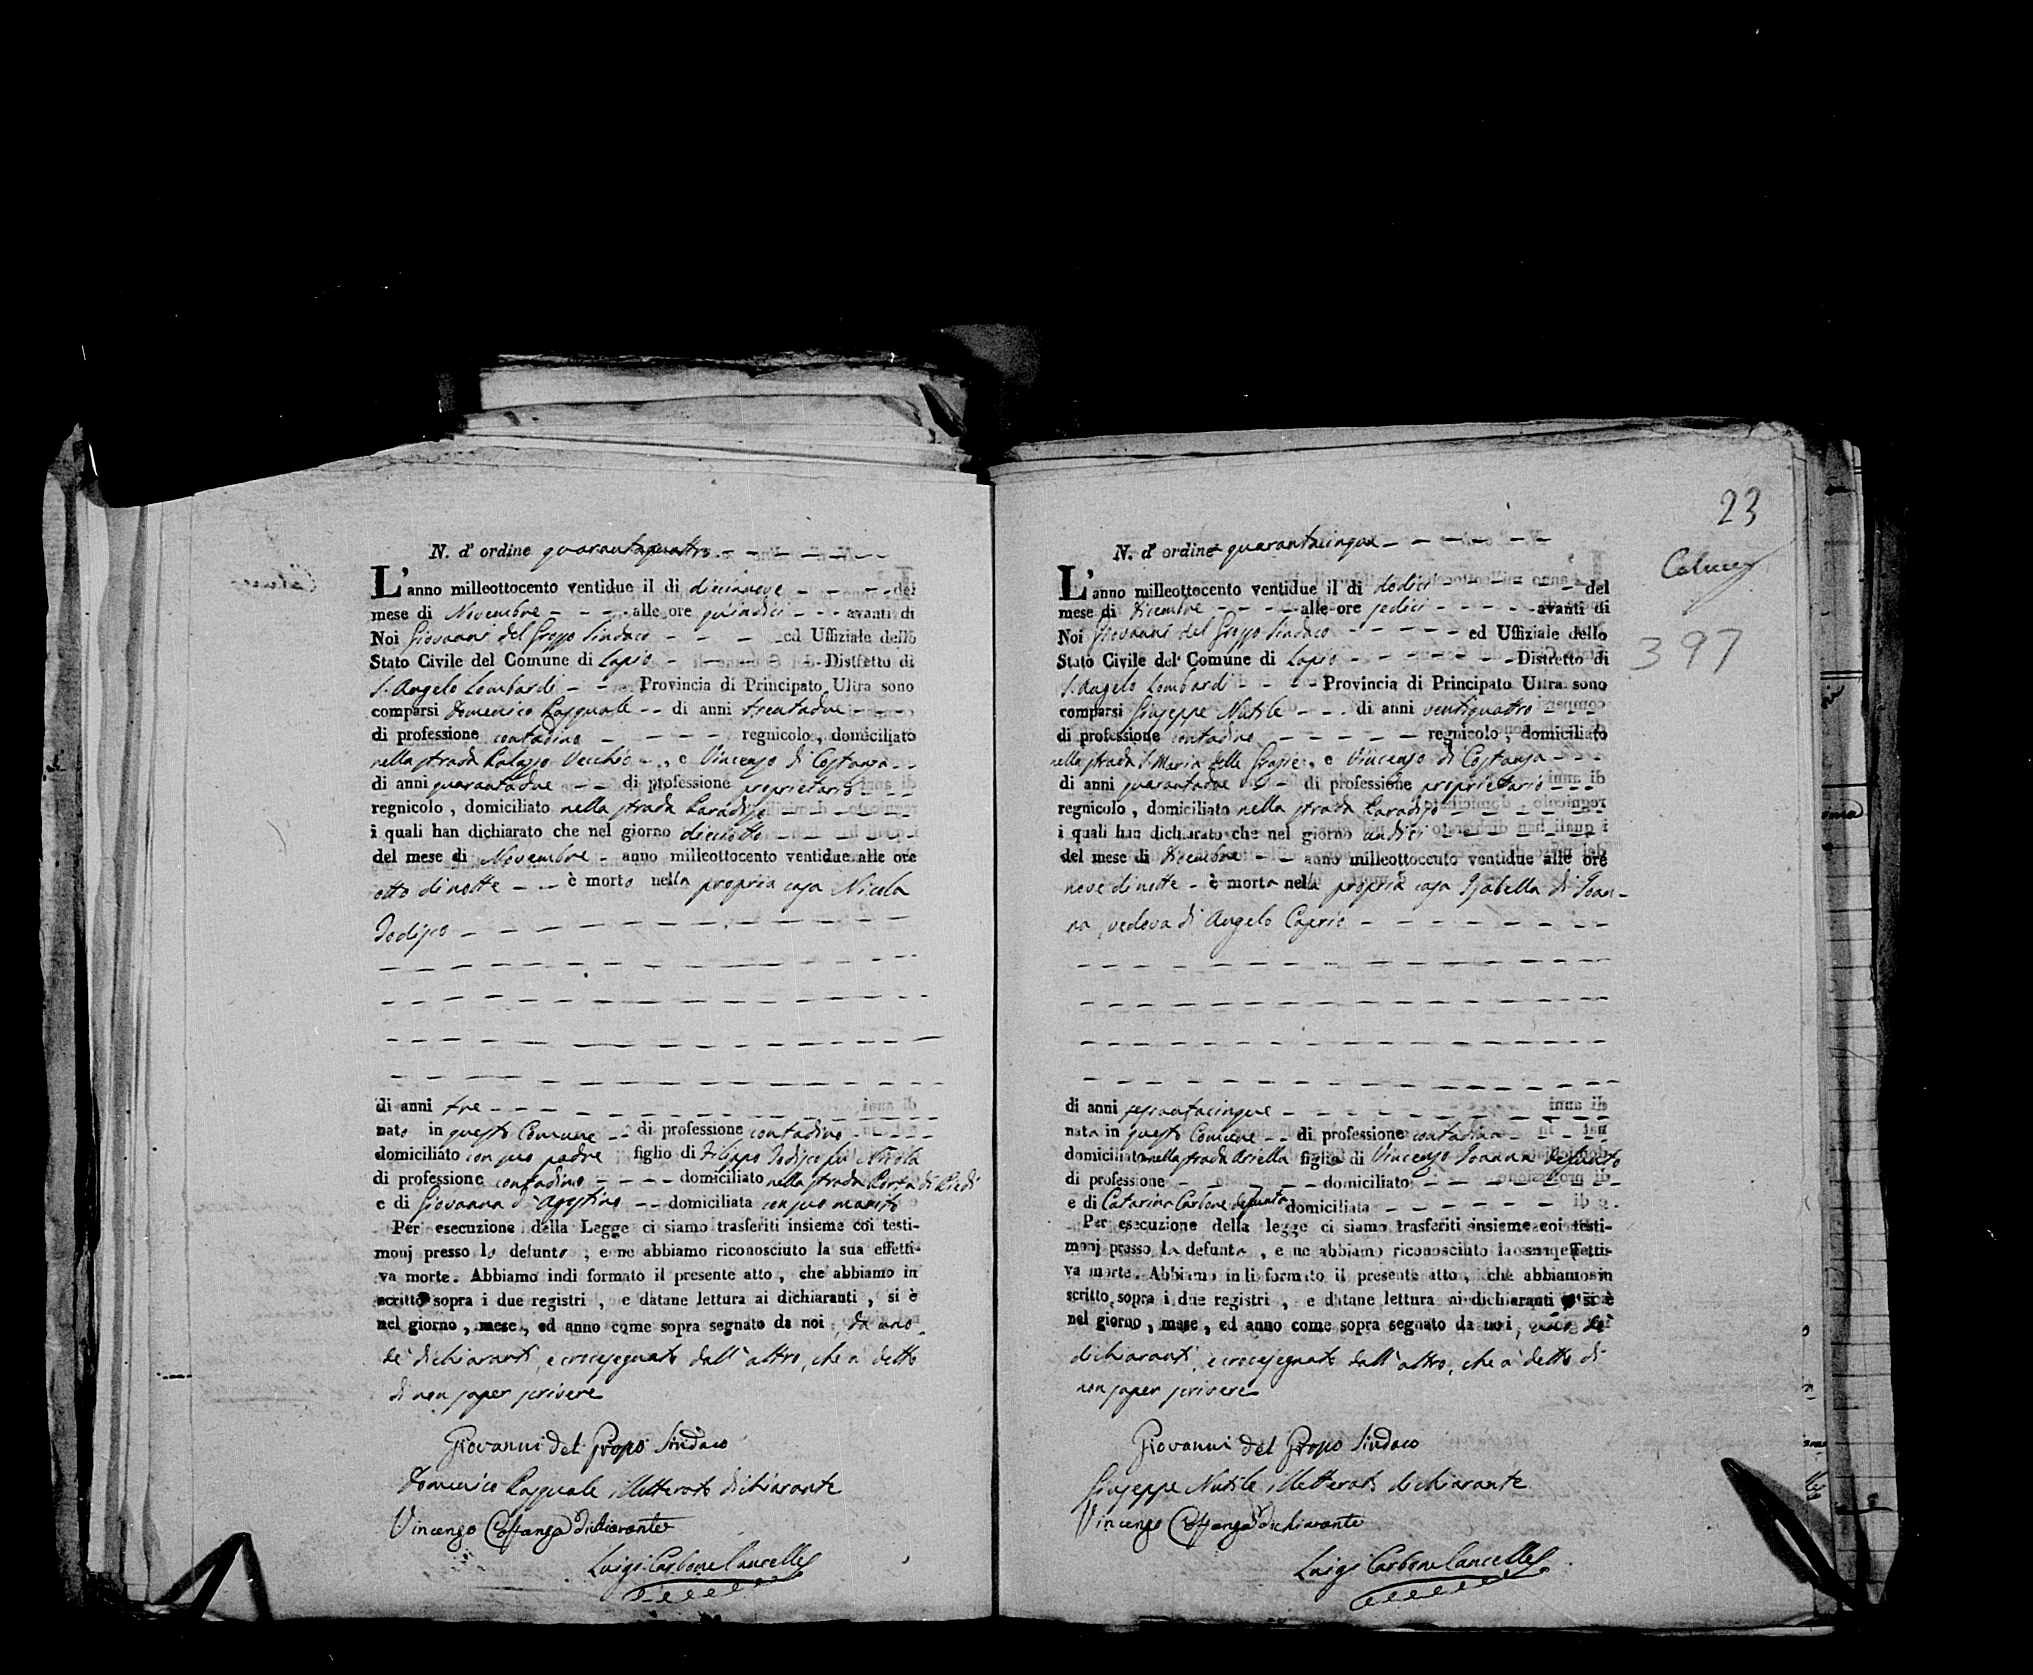 N. d' ordine quarantaquattro
L' anno milleottocento ventidue il di diciannove del
mese di Novembre alle ore quindici avanti di
Noi Giovanni del Groppo Sindaco ed Uffiziale dello
Stato Civile del Comune di Lapio Distretto di
S. Angelo Lombardi Provincia di Principato Ultra sono
comparsi Domenico Pasquale di anni trentadue
di professione contadino regnicolo, domiciliato
nella strada Palazzo Vecchio, e Vincenzo di Costanza
di anni quarantadue di professione proprietario
regnicolo, domiciliato nella strada Paradiso
i quali han dichiarato che nel giorno diciotto
del mese di Novembre anno milleottocento ventidue alle ore
otto di notte è morto nella propria casa Nicola
Iodipo
di anni tre
nato in questo Comune di professione contadino
domiciliato con suo padre figlio di Filippo fu Nicola
di professione contadino domiciliato nella strada Porta di Piedi
e di Giovanna d'Agostino domiciliata con suo marito
Per esecuzione della Legge ci siamo trasferiti insieme coi testi-
monj presso lo defunto, e ne abbiamo riconosciuto la sua effetti-
va morte. Abbiamo indi formato il presente atto, che abbiamo in
scritto sopra i due registri, e datane lettura ai dichiaranti, si è
nel giorno, mese, ed anno come sopra segnato da noi, da uno
de' dichiaranti, e crocesegnato dall'altro, che à detto
di non saper scrivere
Giovanni del Groppo Sindaco
Domenico Pasquale illetterato dichiarante
Vincenzo Costanza dichiarante
Luigi Carbone Cancelle
23
N. d' ordine quarantacinque
L' anno milleottocento ventidue il di dodici del
mese di Dicembre alle ore sedici avanti di
Noi Giovanni del Groppo Sindaco ed Uffiziale dello
Stato Civile del Comune di Lapio Distretto di
S. Angelo Lombardi Provincia di Principato Ultra sono
comparsi Giuseppe Nutile di anni ventiquattro
di professione contadino regnicolo, domiciliato
nella strada S. Maria delle Grazie, e Vincenzo di Costanza
di anni quarantadue di professione proprietario
regnicolo, domiciliato nella strada Paradiso
i quali han dichiarato che nel giorno undici
del mese di Dicembre anno milleottocento ventidue alle ore
nove di notte è morta nella propria casa Isabella di Ioan-
na, vedova di Angelo Caperio
di anni sessantacinque
nata in questo Comune di professione contadina
domiciliata nella strada Ariella figlia di Vincenzo Ioanna defunto
di professione domiciliato
e di Catarina Carbone defunta domiciliata
Per esecuzione della legge ci siamo trasferiti insieme coi testi-
monj presso la defunta, e ne abbiamo riconosciuto la sua effetti-
va morte. Abbiamo indi formato il presente atto, che abbiamo in
scritto sopra i due registri, e datane lettura ai dichiaranti, si è
nel giorno, mese, ed anno come sopra segnato da noi, uno de'
dichiaranti, e crocesegnato dall'altro, che à detto di
non saper scrivere
Giovanni del Groppo Sindaco
Giuseppe Nutile illetterato dichiarante
Vincenzo Costanza dichiarante
Luigi Carbone Cancelle
397